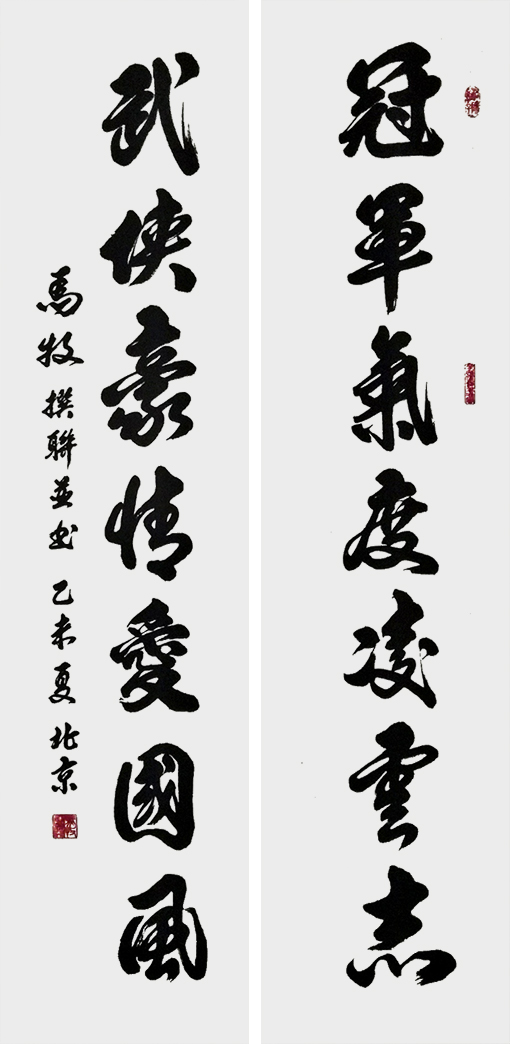 冠軍氣度凌雲志
武俠豪情愛國風
馬牧撰聯並书 乙未夏北京